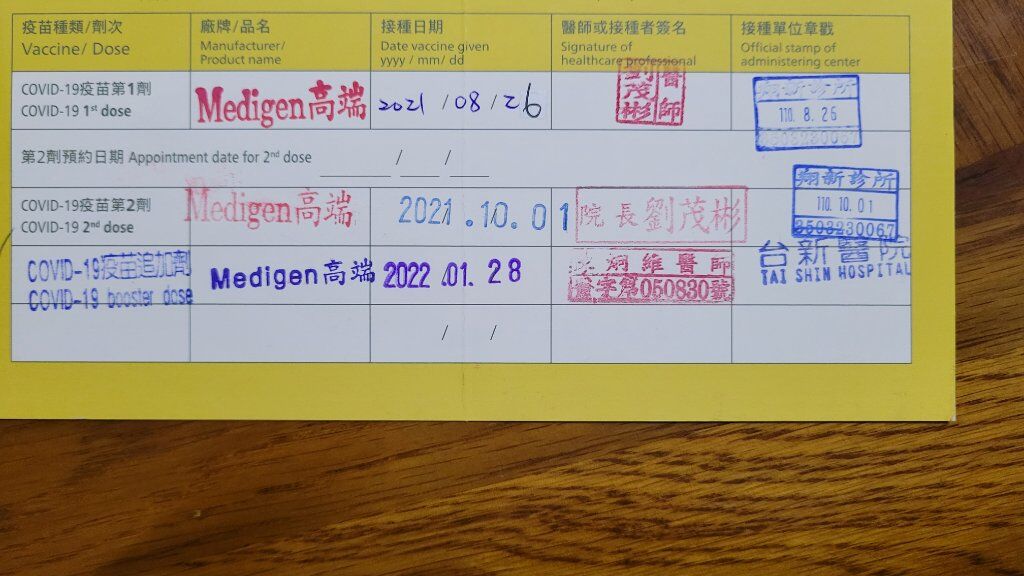 疫苗種類/劑次
Vaccine/ Dose
廠牌/品名
Manufacturer/
Product name
接種日期
Date vaccine given
yyyy / mm/ dd
醫師或接種者簽名
Signature of
healthcare professional
接種單位章戳
Official stamp of
administering center
COVID-19疫苗第1劑
COVID-19 1st dose
Medigen高端
2021 / 08 / 26
劉茂彬
醫師
翔新診所
110. 8. 26
3503230067
第2劑預約日期 Appointment date for 2nd dose
/ /
COVID-19疫苗第2劑
COVID-19 2nd dose
Medigen高端
2021.10.01
院長劉茂彬
翔新診所
110.10.01
3503230067
COVID-19疫苗追加劑
COVID-19 booster dose
Medigen高端
2022.01.28
炯維醫師
字第050830號
台新醫院
TAI SHIN HOSPITAL
/ /